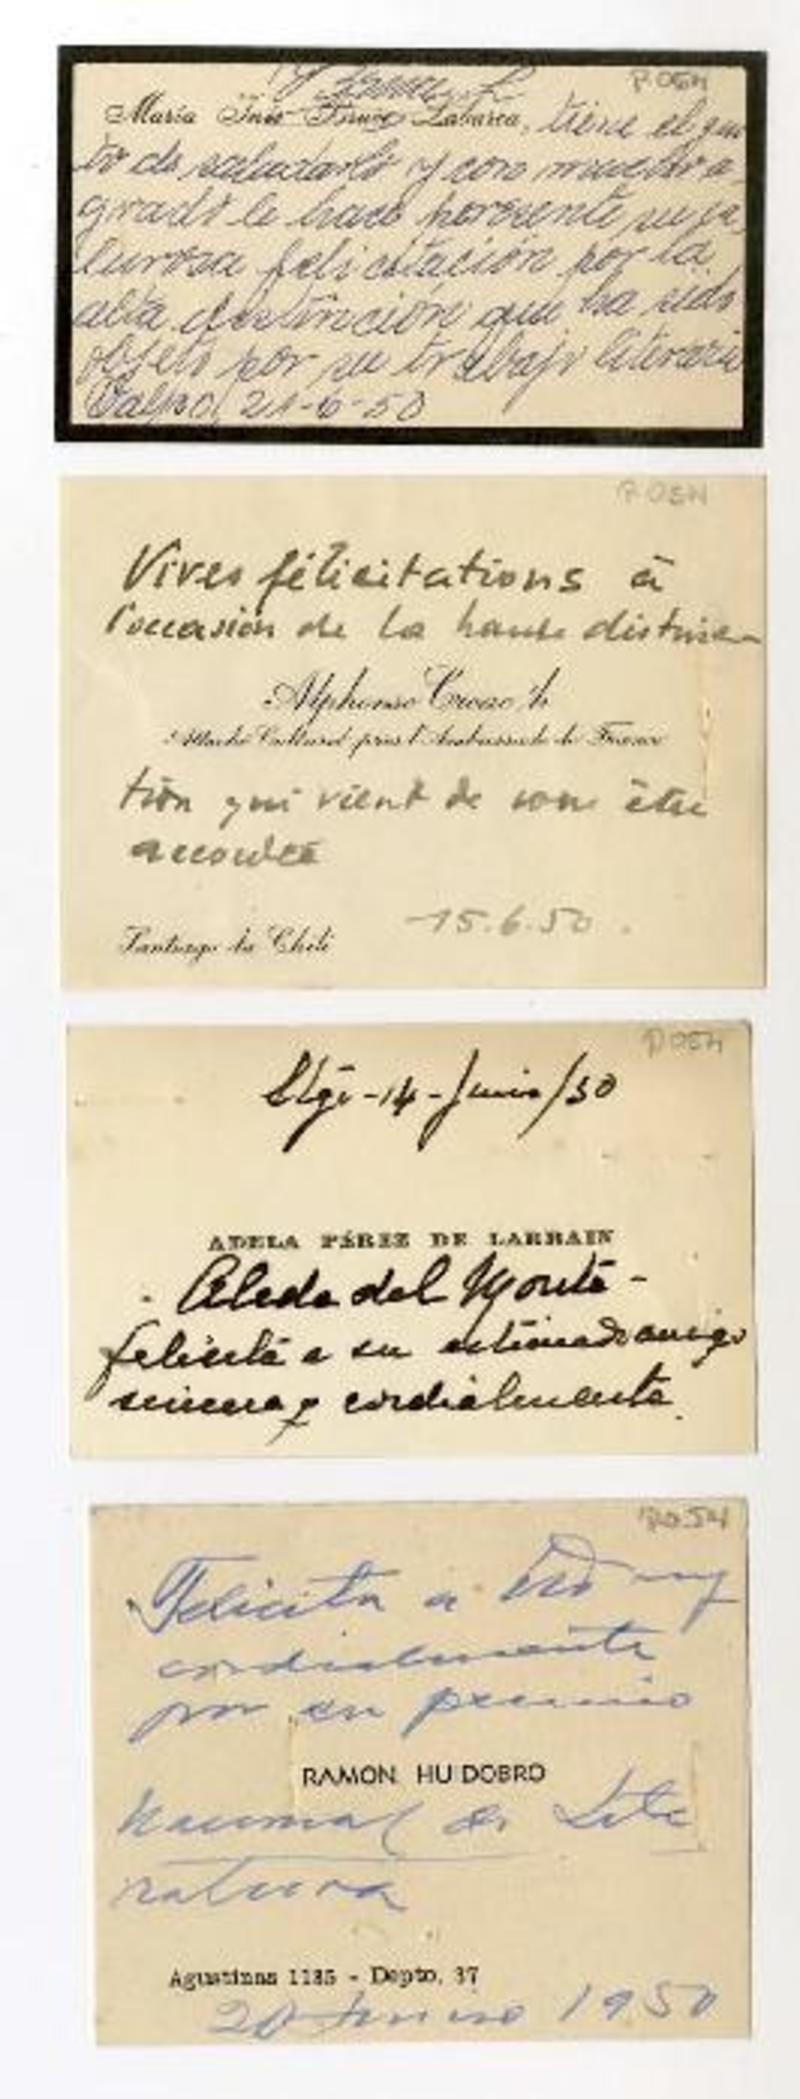 P054
María Inés Labarca, tiene el gus
to de saludarlo y con mucho a
grado le hace presente su ca
lurosa felicitación por la
alta distinción que ha sido
objeto por su trabajo literario
Valpo 21-6-50
P054
Vives félicitations à
l'occasion de la haute distinc
Attaché Culturel près l'Ambassade de France
tion qui vient de vous être
accordée
Santiago du Chili
15.6.50.
P054
Stgo-14-Junio/50
ADELA PÉREZ DE LARRAIN
felicita a su estimado amigo
sincera y cordialmente.
P054
Felicita a Ud muy
cordialmente
por su premio
RAMON HUIDOBRO
Nacional de Lite
ratura
Agustinas 1185 - Depto. 37
20 Junio 1950